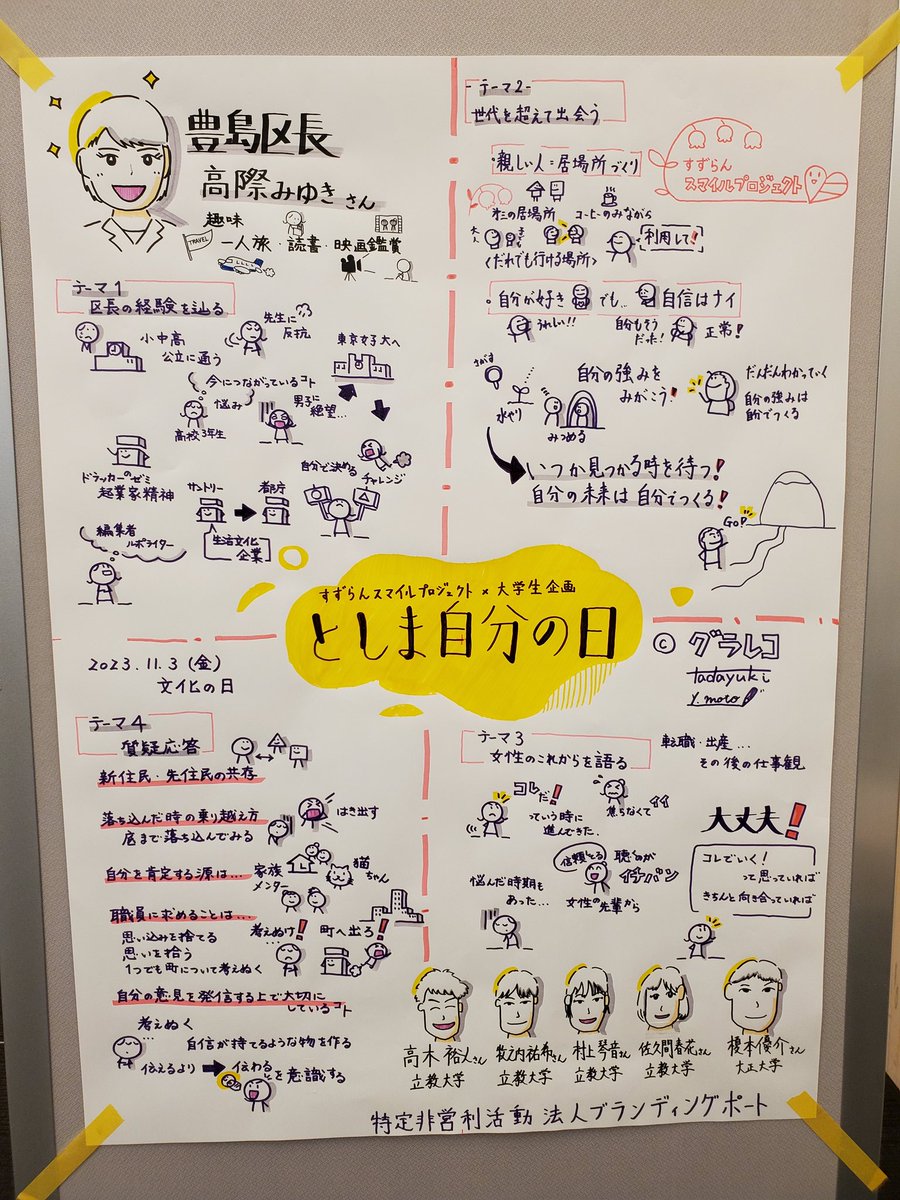 豊島区長
高際みゆきさん
趣味
TRAVEL
一人旅・読書・映画鑑賞
テーマ1
区長の経験を辿る
小中高
公立に通う
先生に
反抗
東京女子大へ
今につながっているコト
悩み
高校3年生
男子に
絶望…
チャレンジ
自分で決める
ドラッカーのゼミ
起業家精神
サントリー
都庁
生活文化
企業
編集者
ルポライター
テーマ2
世代を超えて出会う
すずらん
スマイルプロジェクト
・親しい人=居場所づくり
オニの居場所
コーヒーのみながら
大人
利用して!
〈だれでも行ける場所〉
・自分が好き でも… 自信はナイ
うれしい!!
自分もそう
だった!
正常!
さがす
水やり
みつめる
自分の強みを
みがこう!
だんだんわかっていく
自分の強みは
自分でつくる
いつか見つかる時を待つ!
自分の未来は自分でつくる!
GO!
すずらんスマイルプロジェクト×大学生企画
としま自分の日
© グラレコ
tadayuki
Y.moto
2023.11.3(金)
文化の日
テーマ4
質疑応答
新住民・先住民の共存
落ち込んだ時の乗り越え方
底まで落ち込んでみる
はき出す
自分を肯定する源は…
家族
メンター
猫
ちゃん
職員に求めることは…
思い込みを捨てる
思いを拾う
1つでも町について考えぬく
考えぬけ!
町へ出ろ!
自分の意見を発信する上で大切に
しているコト
考えぬく
自信が持てるような物を作る
伝えるより
伝わることを意識する
テーマ3
女性のこれからを語る
転職・出産…
その後の仕事観
コレだ!
っていう時に
進んできた.
焦らなくて
イイ
悩んだ時期も
あった…
信頼とる
聴くのが
イチバン
女性の先輩から
大丈夫!
コレでいく!
って思っていれば
きちんと向き合っていれば
高木裕人さん
立教大学
牧之内祐希さん
立教大学
村上琴音さん
立教大学
佐久間春花さん
立教大学
榎本優介さん
大正大学
特定非営利活動法人ブランディングポート